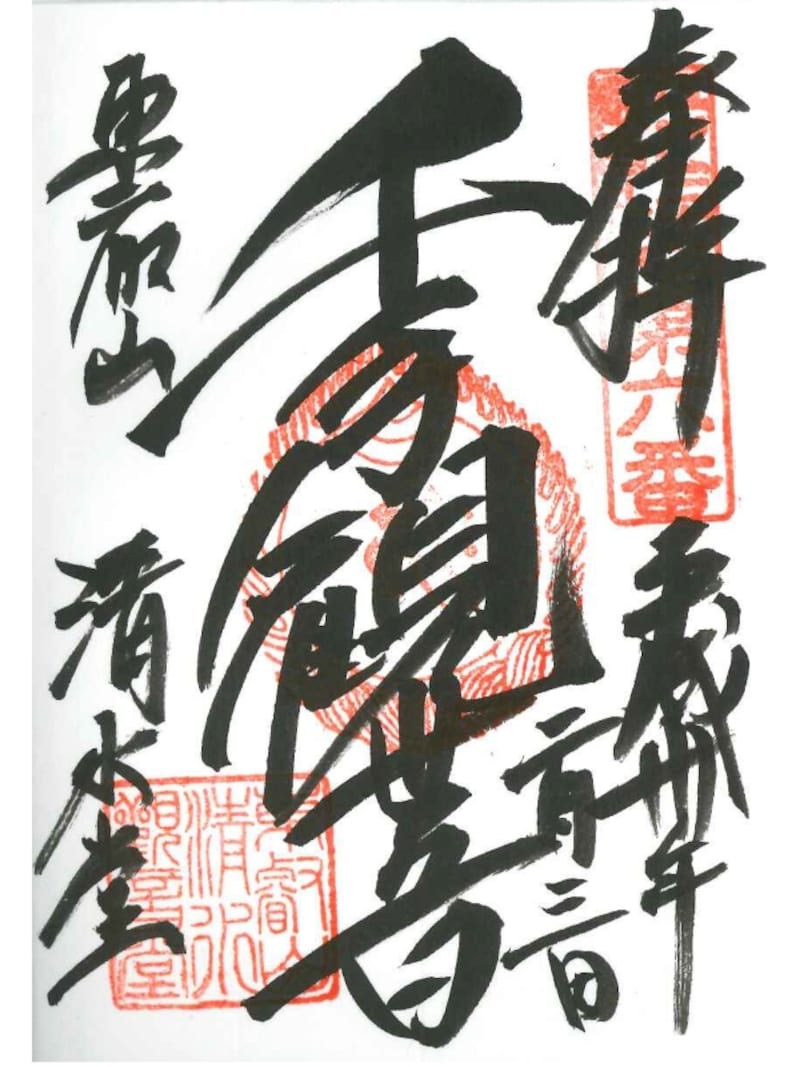 奉拝
第六番
平成卅年
二月三日
千手観世音
東叡山
清水堂
東叡山
清水
觀音堂